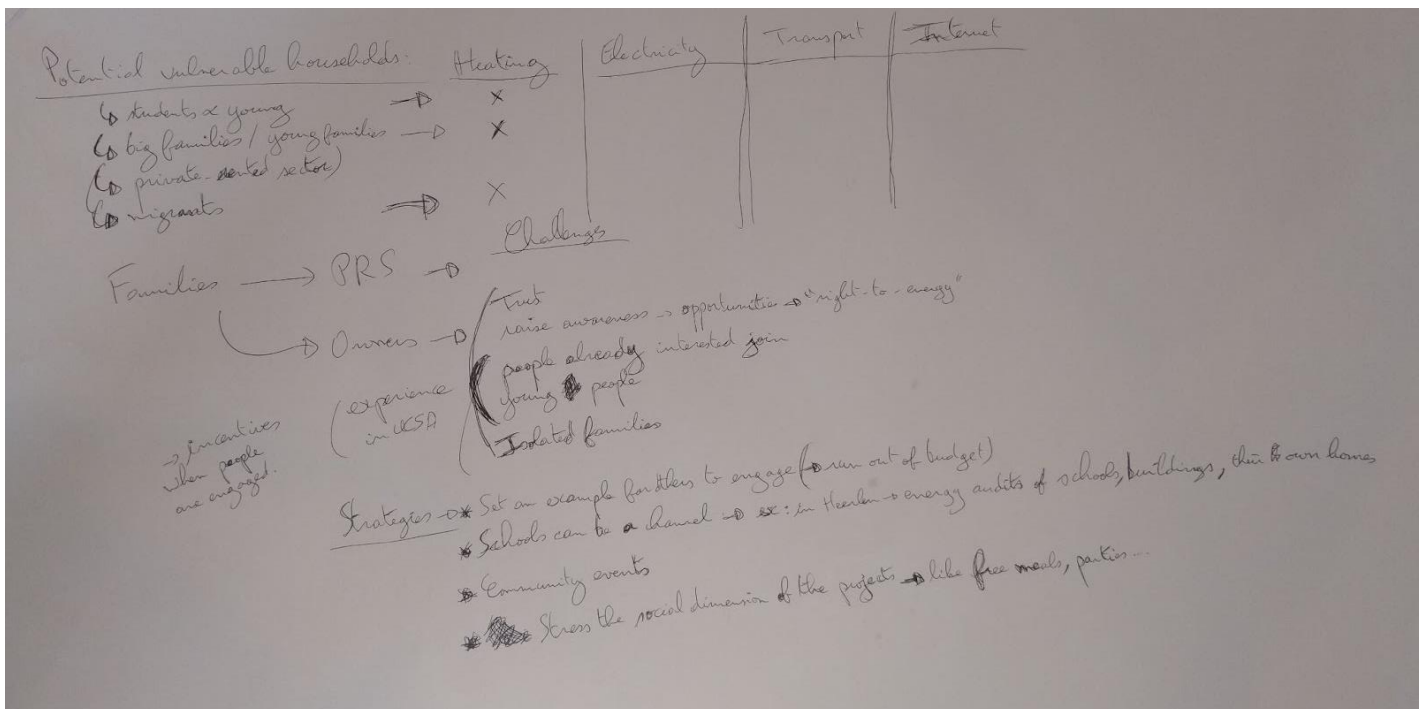 Potential vulnerable households: Heating Electricity Transport Internet
↳ students & young → x
↳ big families / young families → x
(↳ private-rented sector)
↳ migrants → x
Challenges
Families → PRS →
→ Owners → Trust
raise awareness → opportunities → "right-to-energy"
people already interested join
young people
Isolated families
(experience
in
→ incentives
when people
are engaged.
Strategies → * Set an example for others to engage (→ ran out of budget)
* Schools can be a channel → ex: in Heerlen → energy audits of schools, buildings, their own homes
* Community events
* Stress the social dimension of the projects → like free meals, parties...